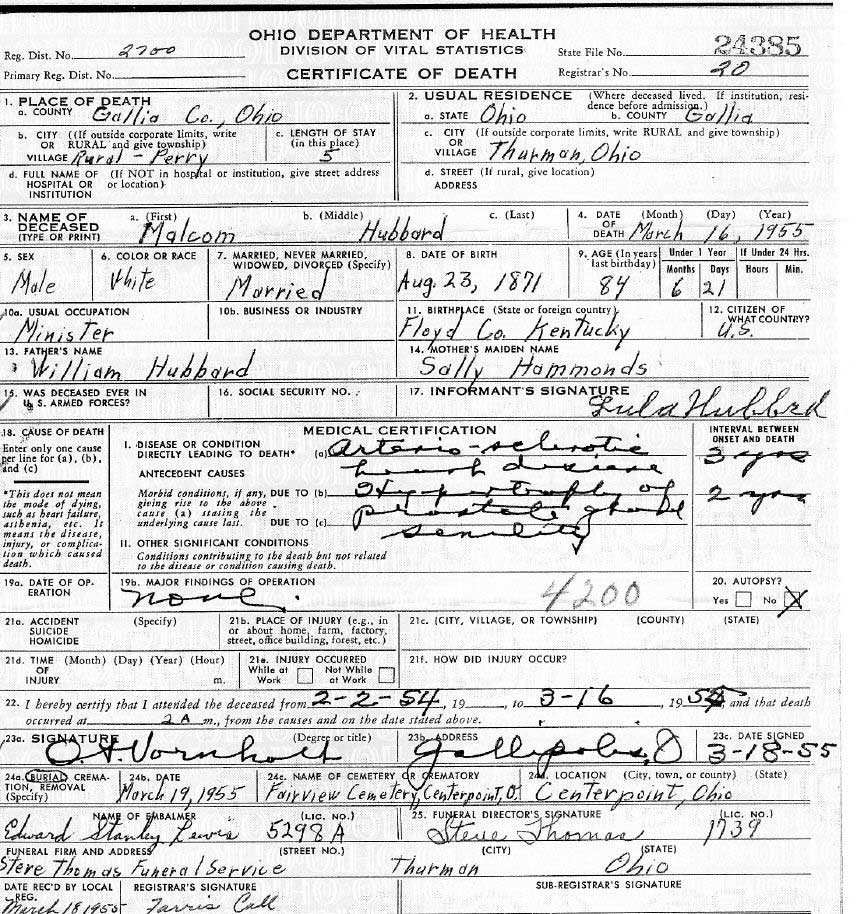 OHIO DEPARTMENT OF HEALTH
DIVISION OF VITAL STATISTICS
CERTIFICATE OF DEATH
Reg. Dist. No. 2700
Primary Reg. Dist. No.
State File No. 24385
Registrar's No. 20
1. PLACE OF DEATH
a. COUNTY Gallia Co., Ohio
b. CITY ((If outside corporate limits, write
OR RURAL and give township)
VILLAGE Rural - Perry
c. LENGTH OF STAY
(in this place)
5
d. FULL NAME OF (If NOT in hospital or institution, give street address
HOSPITAL OR or location)
INSTITUTION
2. USUAL RESIDENCE (Where deceased lived. If institution, resi-
dence before admission.)
a. STATE Ohio b. COUNTY Gallia
c. CITY (If outside corporate limits, write RURAL and give township)
OR
VILLAGE Thurman, Ohio
d. STREET (If rural, give location)
ADDRESS
3. NAME OF DECEASED
(TYPE OR PRINT)
a. (First) b. (Middle) c. (Last)
Malcom Hubbard
4. DATE OF DEATH (Month) (Day) (Year)
March 16, 1955
5. SEX
Male
6. COLOR OR RACE
White
7. MARRIED, NEVER MARRIED,
WIDOWED, DIVORCED (Specify)
Married
8. DATE OF BIRTH
Aug. 23, 1871
9. AGE (In years
last birthday)
84
Under 1 Year
Months Days
6 21
If Under 24 Hrs.
Hours Min.
10a. USUAL OCCUPATION
Minister
10b. BUSINESS OR INDUSTRY
11. BIRTHPLACE (State or foreign country)
Floyd Co. Kentucky
12. CITIZEN OF
WHAT COUNTRY?
U.S.
13. FATHER'S NAME
William Hubbard
14. MOTHER'S MAIDEN NAME
Sally Hammonds
15. WAS DECEASED EVER IN
U. S. ARMED FORCES?
16. SOCIAL SECURITY NO.
17. INFORMANT'S SIGNATURE
Lula Hubbard
18. CAUSE OF DEATH
Enter only one cause
per line for (a), (b),
and (c)
*This does not mean
the mode of dying,
such as heart failure,
asthenia, etc. It
means the disease,
injury, or complica-
tion which caused
death.
MEDICAL CERTIFICATION
I. DISEASE OR CONDITION
DIRECTLY LEADING TO DEATH* (a) Arterio-sclerotic
heart disease
ANTECEDENT CAUSES
Morbid conditions, if any,
giving rise to the above
cause (a) stating the
underlying cause last.
DUE TO (b) Hypertrophy of
prostate gland
DUE TO (c)
senility
II. OTHER SIGNIFICANT CONDITIONS
Conditions contributing to the death but not related
to the disease or condition causing death.
INTERVAL BETWEEN
ONSET AND DEATH
3 yrs
2 yrs
19a. DATE OF OP-
ERATION
19b. MAJOR FINDINGS OF OPERATION
none.
4200
20. AUTOPSY?
Yes No X
21a. ACCIDENT
SUICIDE
HOMICIDE
(Specify)
21b. PLACE OF INJURY (e.g., in
or about home, farm, factory,
street, office building, forest, etc.)
21c. (CITY, VILLAGE, OR TOWNSHIP) (COUNTY) (STATE)
21d. TIME (Month) (Day) (Year) (Hour)
OF
INJURY m.
21e. INJURY OCCURRED
While at Work Not While at Work
21f. HOW DID INJURY OCCUR?
22. I hereby certify that I attended the deceased from 2-2-54, 19 , to 3-16 1955 and that death
occurred at 2 A m., from the causes and on the date stated above.
23a. SIGNATURE (Degree or title)
O. A. Vornholt
23b. ADDRESS
Gallipolis, O
23c. DATE SIGNED
3-18-55
24a. BURIAL, CREMA-
TION, REMOVAL
(Specify)
24b. DATE
March 19, 1955
24c. NAME OF CEMETERY OR CREMATORY
Fairview Cemetery, Centerpoint, O.
24d. LOCATION (City, town, or county) (State)
Centerpoint, Ohio
NAME OF EMBALMER (LIC. NO.)
Edward Stanley Lewis 5298A
25. FUNERAL DIRECTOR'S SIGNATURE (LIC. NO.)
Steve Thomas 1739
FUNERAL FIRM AND ADDRESS (STREET NO.) (CITY) (STATE)
Steve Thomas Funeral Service Thurman Ohio
DATE REC'D BY LOCAL
REG.
March 18 1955
REGISTRAR'S SIGNATURE
Farris Call
SUB-REGISTRAR'S SIGNATURE